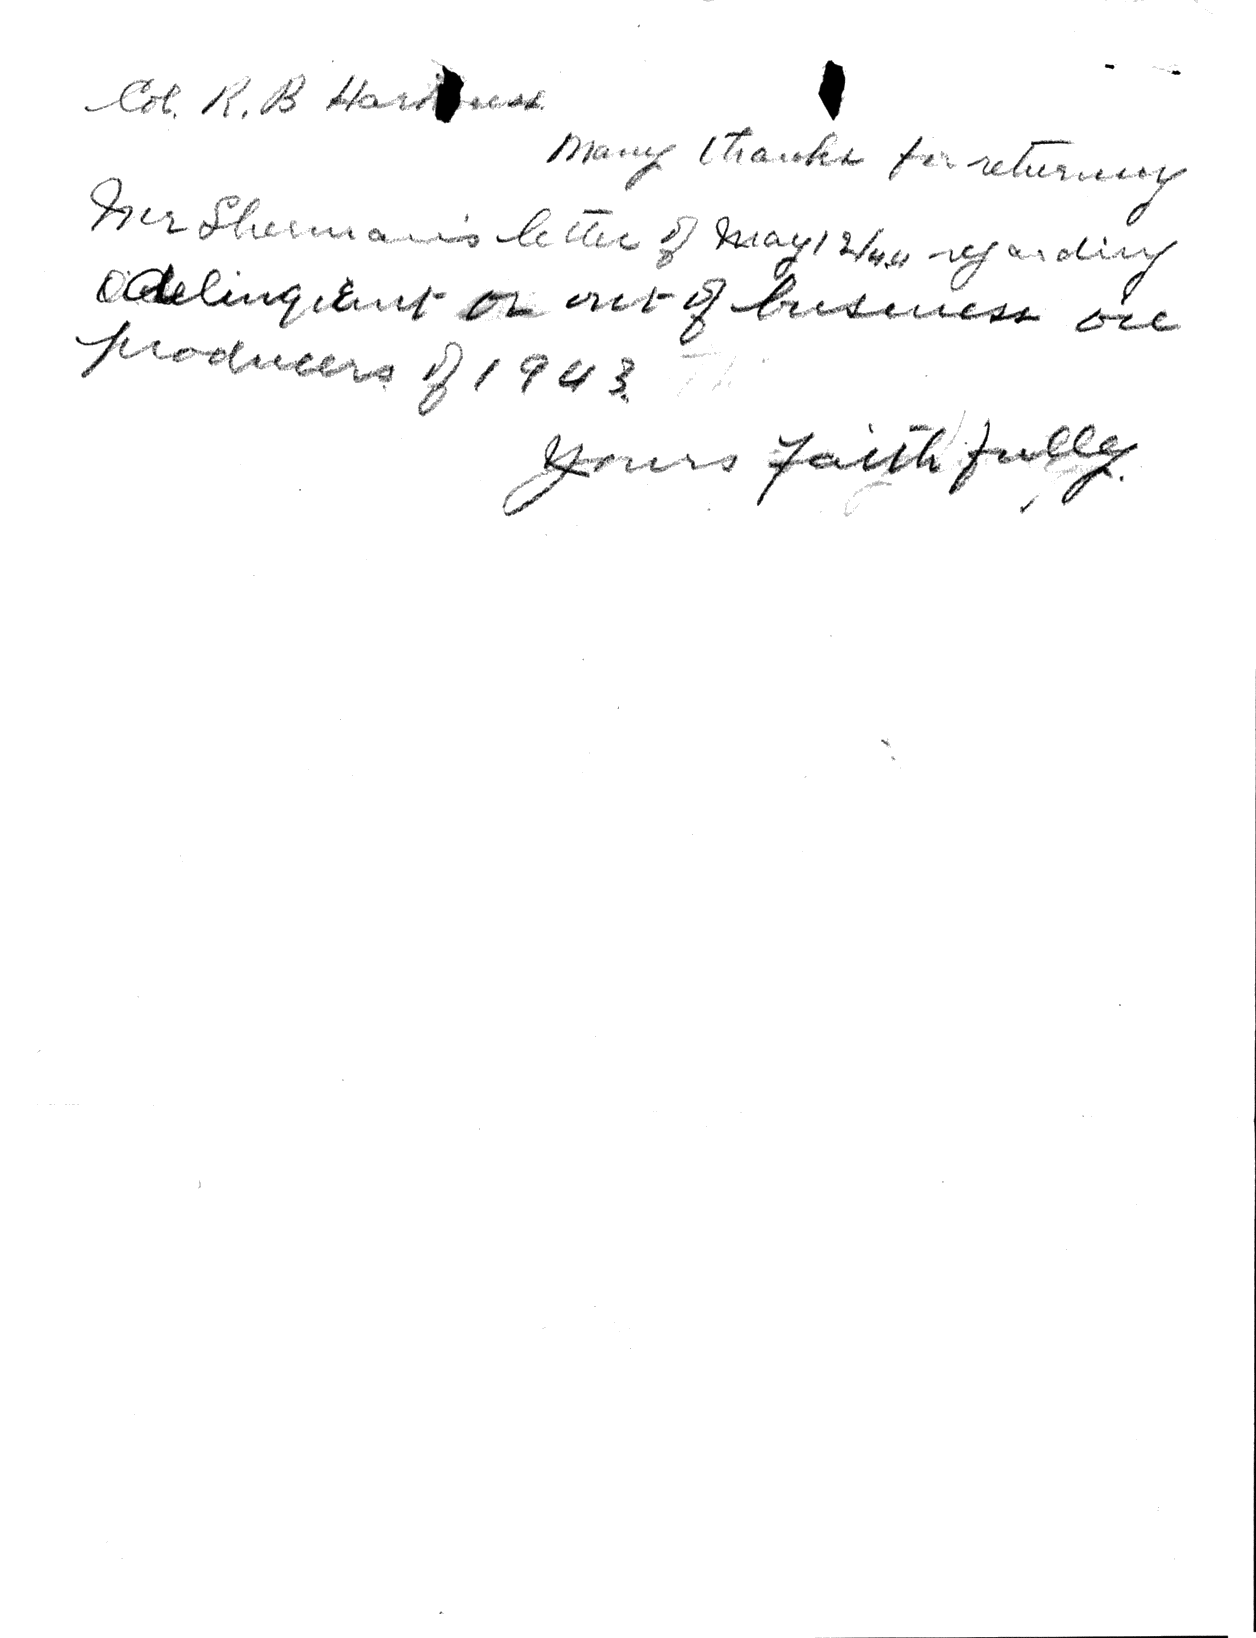 Col. R. B Harkness
Many thanks for returning
Mr Sherman's letter of May 12/44 regarding
delinquent or out of business oil
producers of 1943.
Yours faithfully.